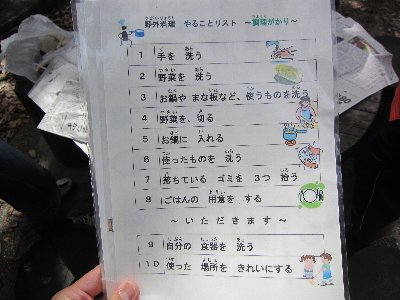 野外料理 やることリスト ～調理がかり～
1 手を 洗う
2 野菜を 洗う
3 お鍋や まな板など、使うものを洗う
4 野菜を、切る
5 お鍋に 入れる
6 使ったものを 洗う
7 落ちている ゴミを 3つ 拾う
8 ごはんの 用意を する
～いただきます～
9 自分の 食器を 洗う
10 使った 場所を きれいにする